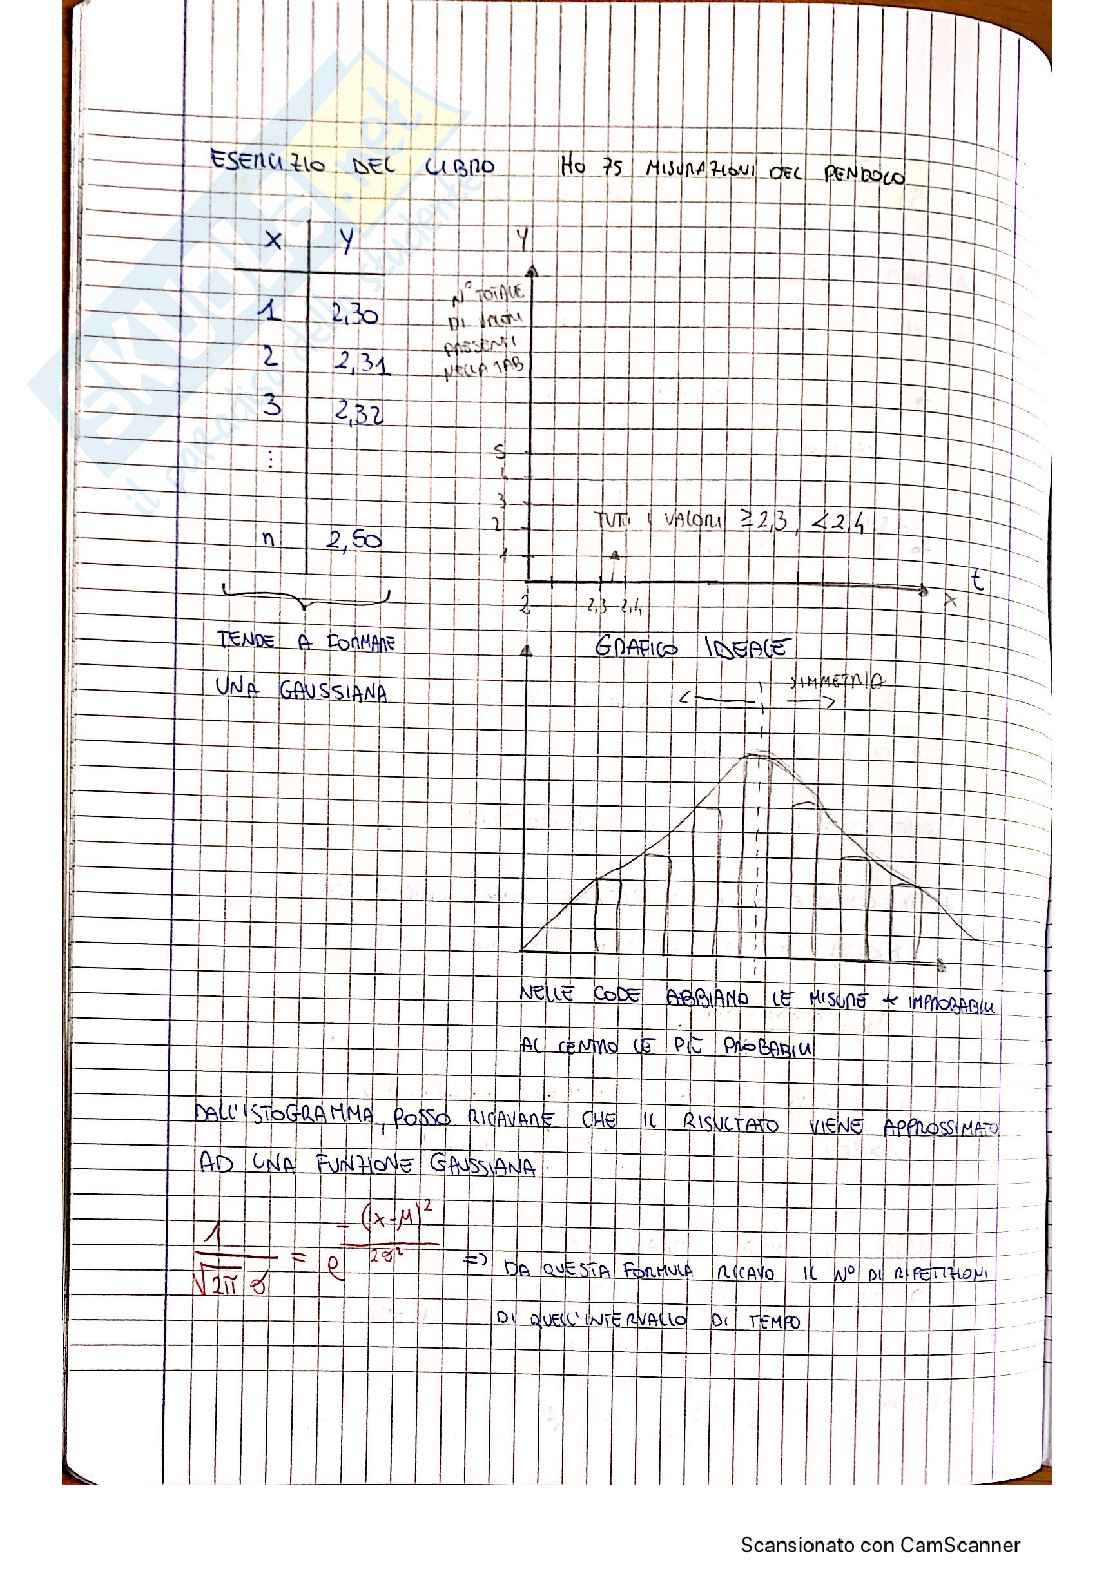 ESERCIZIO DEL LIBRO HO 75 MISURAZIONI DEL PENDOLO
X Y
1 2,30
2 2,31
3 2,32
⋮
n 2,50
TENDE A FORMARE
UNA GAUSSIANA
Y
N° TOTALE
DI VALORI
PRESENTI
NELLA TAB
5
4
3
2
1
TUTTI I VALORI ≥2,3, <2,4
2 2,3 2,4 x t
GRAFICO IDEALE
SIMMETRIA
NELLE CODE ABBIAMO LE MISURE + IMPROBABILI
AL CENTRO LE PIÙ PROBABILI
DALL'ISTOGRAMMA, POSSO RICAVARE CHE IL RISULTATO VIENE APPROSSIMATO
AD UNA FUNZIONE GAUSSIANA
1/(√2π σ) = e^(-(x-μ)²/2σ²) => DA QUESTA FORMULA RICAVO IL N° DI RIPETIZIONI
DI QUELL'INTERVALLO DI TEMPO
SKUOLA.net
il paradiso dello studente
Scansionato con CamScanner